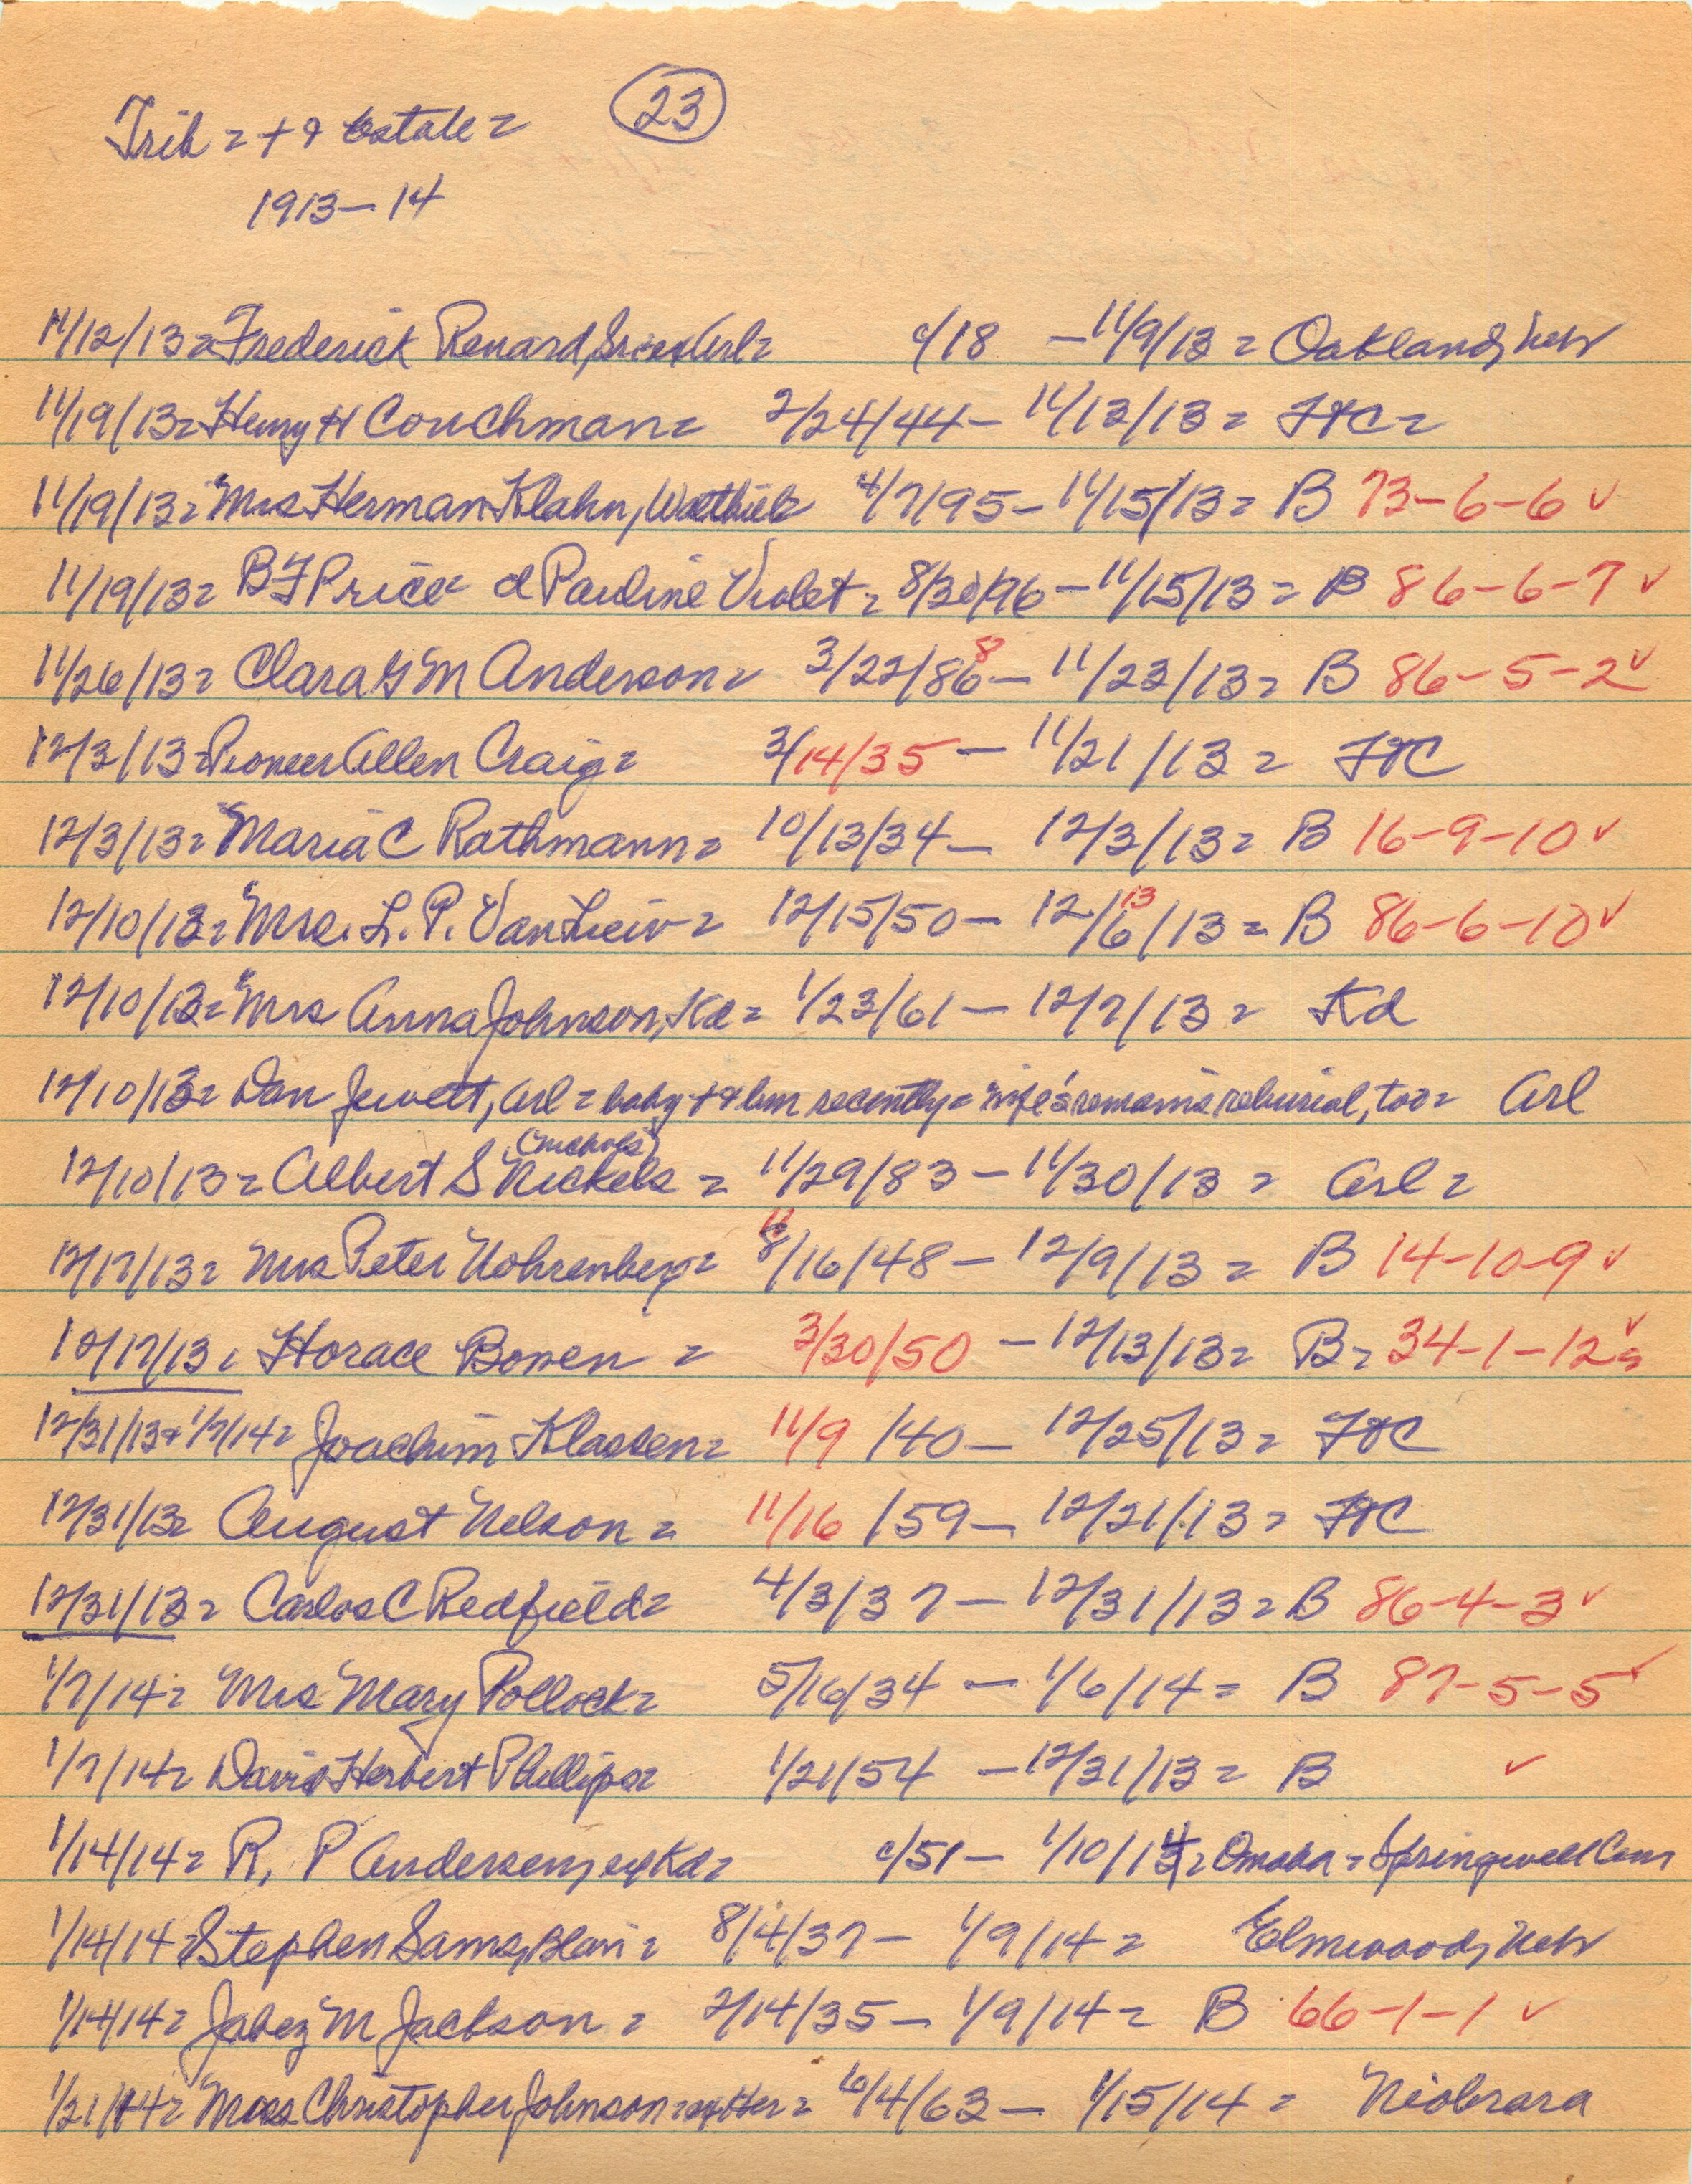 23
Trib = + & estate =
1913-14
11/12/13 = Frederick Renard, Arl = c/18 - 11/9/13 = Oakland, Nebr
11/19/13 = Henry H Couchman = 2/24/44 - 11/13/13 = FtC =
11/19/13 = Mrs Herman Klahn, 4/7/95 - 11/15/13 = B 73-6-6 ✓
11/19/13 = B F Price d Pauline Violet = 8/30/96 - 11/15/13 = B 86-6-7 ✓
11/26/13 = Clara G M Anderson = 3/22/86 8 - 11/23/13 = B 86-5-2 ✓
12/3/13 = Pioneer Allen Craig = 3/14/35 - 11/21/13 = FtC
12/3/13 = Maria C Rathmann = 10/13/34 - 12/3/13 = B 16-9-10 ✓
12/10/13 = Mrs. L. P. Van Lieiv = 12/15/50 - 12/6 13/13 = B 86-6-10 ✓
12/10/13 = Mrs Anna Johnson, Kd = 1/23/61 - 12/7/13 = Kd
12/10/13 = Dan Jewett, Arl = baby + & bur recently = wife's remains reburial, too = Arl
(Nichols)
12/10/13 = Albert S Nickels = 11/29/83 - 11/30/13 = Arl =
12/17/13 = Mrs Peter Nohrenberg = 11 8/16/48 - 12/9/13 = B 14-10-9 ✓
12/17/13 = Horace Bowen = 3/30/50 - 12/13/13 = B = 34-1-12 ✓ =
12/31/13 & 1/7/14 = Joachim Klassen = 11/9/40 - 12/25/13 = FtC
12/31/13 = August Nelson = 11/16/59 - 12/21/13 = FtC
12/31/13 = Carlos C Redfield = 4/3/37 - 12/31/13 = B 86-4-3 ✓
1/7/14 = Mrs Mary Pollock = 5/16/34 - 1/6/14 = B 87-5-5 ✓
1/7/14 = David Herbert Phillips = 1/21/54 - 12/31/13 = B ✓
1/14/14 = R. P Andersen, ex Kd = c/51 - 1/10/14 = Omaha = Springwell Cem
1/14/14 = Stephen Sams, Blair = 8/4/37 - 1/9/14 = Elmwood, Nebr
1/14/14 = Jabez M Jackson = 2/14/35 - 1/9/14 = B 66-1-1 ✓
1/21/14 = Christopher Johnson = ex Her = 6/4/63 - 1/15/14 = Niobrara